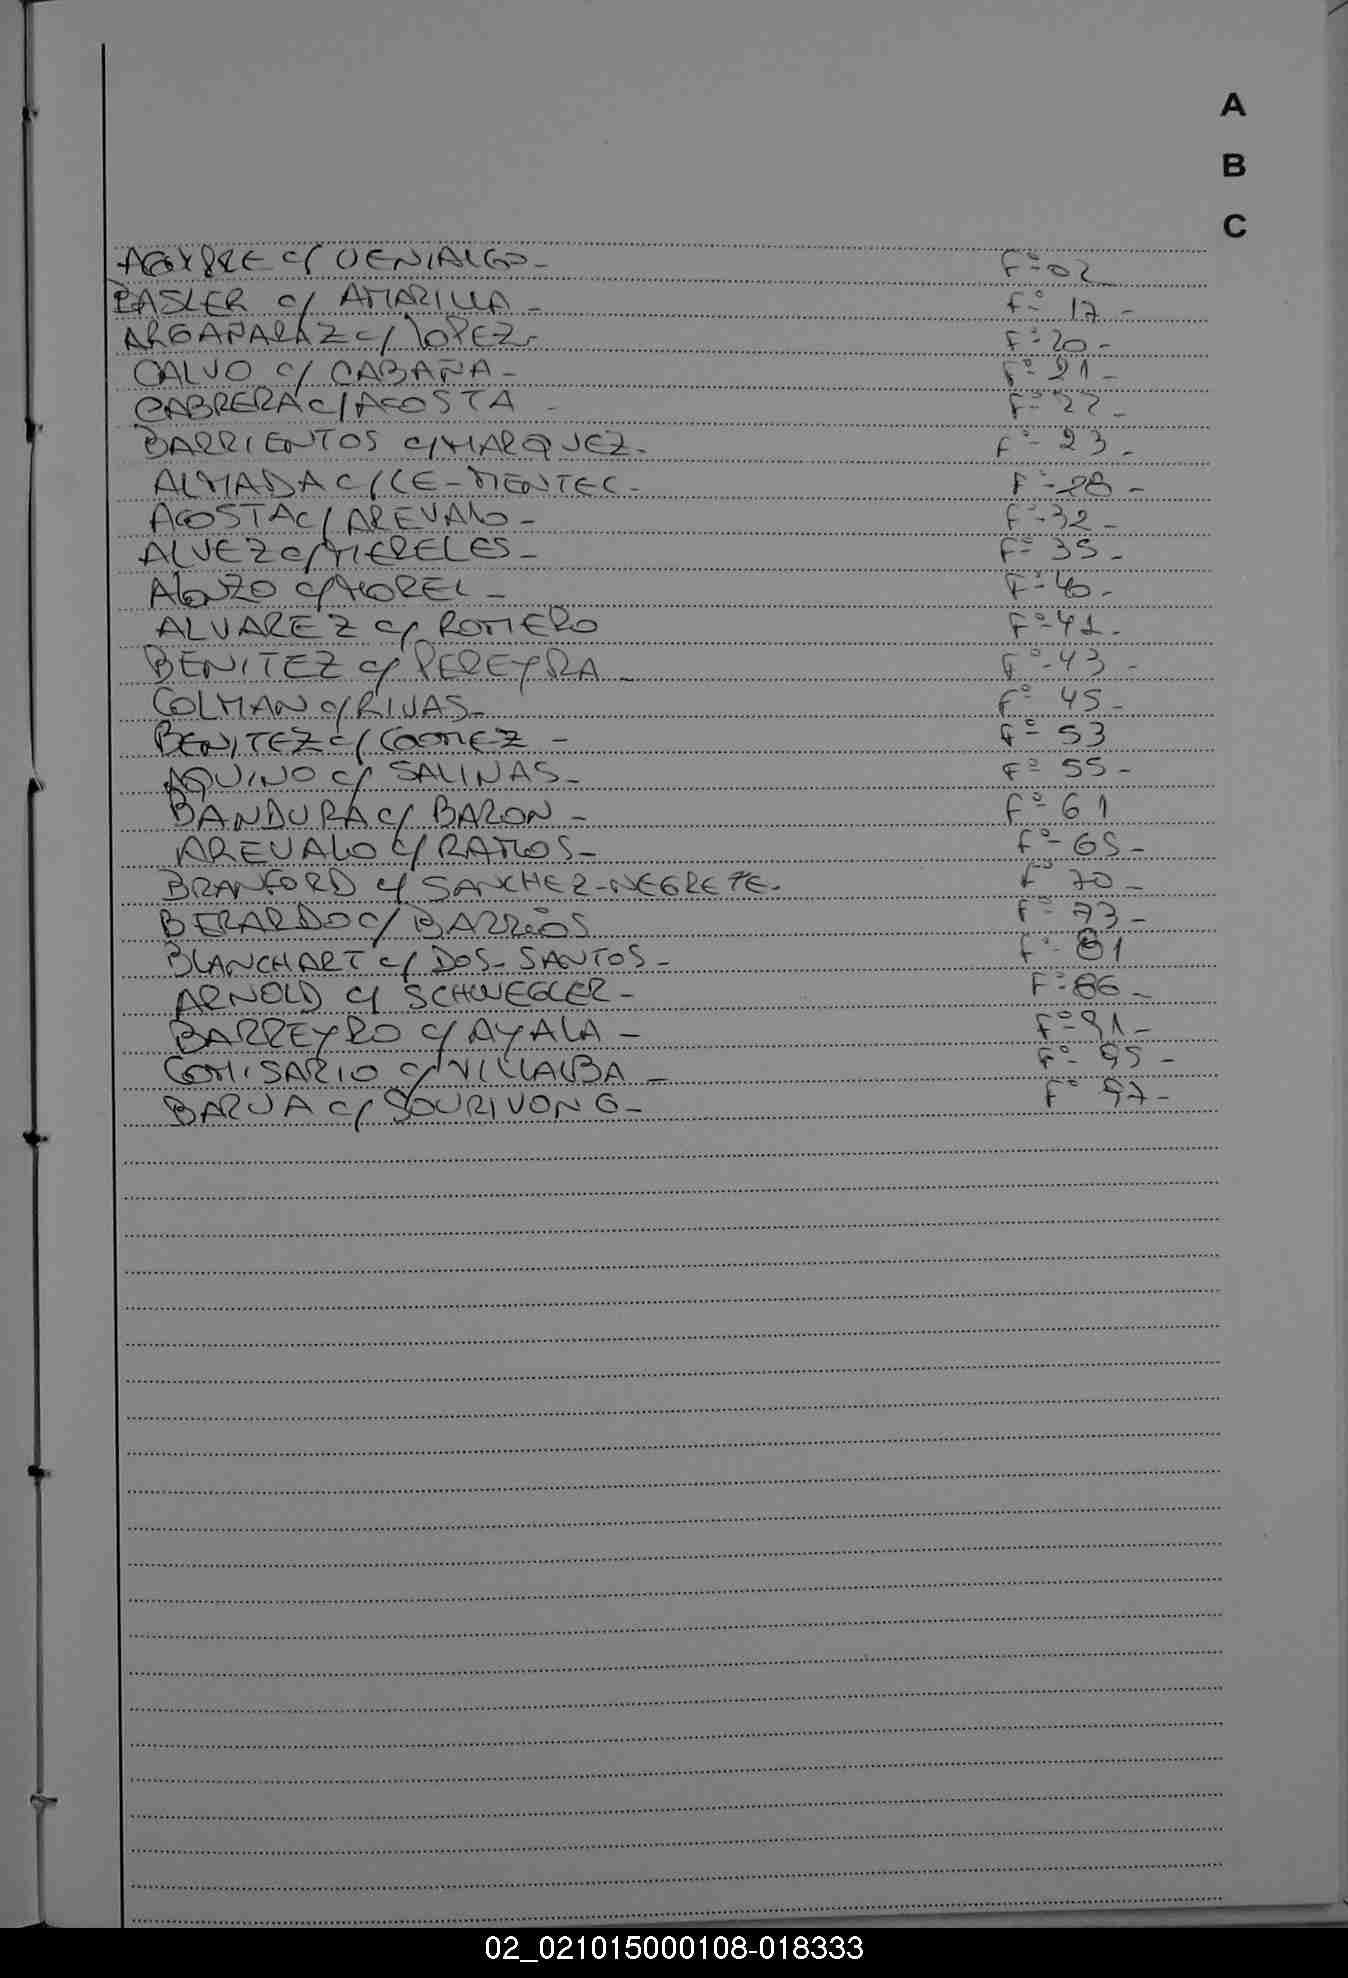 A
B
C
AGUIRRE c/ VENIALGO - Fº 02
BASLER c/ AMARILLA - Fº 17 -
ARGAÑARAZ c/ LOPEZ - Fº 20 -
CALVO c/ CABAÑA - Fº 21 -
CABRERA c/ ACOSTA - Fº 22 -
BARRIENTOS c/ MARQUEZ - Fº 23 -
ALMADA c/ CE- - Fº 28 -
ACOSTA c/ AREVALO - Fº 32 -
ALVEZ c/ MERELES - Fº 35 -
ALONZO c/ MOREL - Fº 40 -
ALVAREZ c/ ROMERO Fº 41 -
BENITEZ c/ PEREYRA - Fº 43 -
COLMAN c/ RIVAS - Fº 45 -
BENITEZ c/ GOMEZ - Fº 53
AQUINO c/ SALINAS - Fº 55 -
BANDURA c/ BARON - Fº 61
AREVALO c/ RAMOS - Fº 65 -
BRANFORD c/ SANCHEZ-NEGRETE - Fº 70 -
BERARDO c/ BARRIOS Fº 73 -
BLANCHART c/ DOS-SANTOS - Fº 81
ARNOLD c/ SCHWEGLER - Fº 86 -
BARREYRO c/ AYALA - Fº 91 -
COMISARIO c/ VILLALBA - Fº 95 -
BARUA c/ SOURIVONG - Fº 97 -
02_021015000108-018333